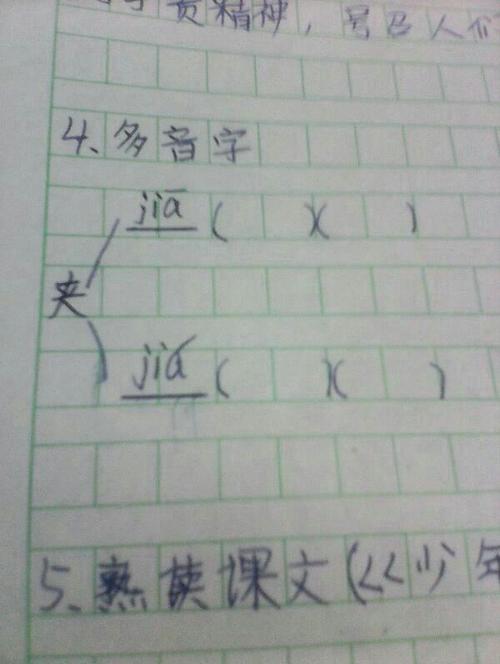 贡精神，号召人们
4、多音字
jiā（ ）（ ）
夹
jiá（ ）（ ）
5、熟读课文（《少年